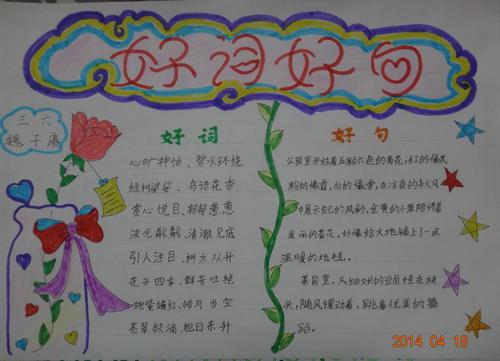 好词好句
三、六
魏子
好词
心旷神怡、碧水环绕
绿树婆娑、鸟语花香
赏心悦目、郁郁葱葱
波光粼粼、清澈见底
引人注目、树木丛升
花开四季、群芳吐艳
姹紫嫣红、皓月当空
苍翠欲滴、旭日东升
好句
公园里开放着五颜六色的菊花,红的像火,
粉的像霞,白的像雪,在凉爽的秋风
中展示自己的风彩,金黄的小雏陪伴着
美丽的菊花,好像给大地铺上了一层
温暖的地毯。
菜园里,又细又长的豆角挂在枝
头,随风摆动着,跳着优美的舞
蹈。
2014 04 18